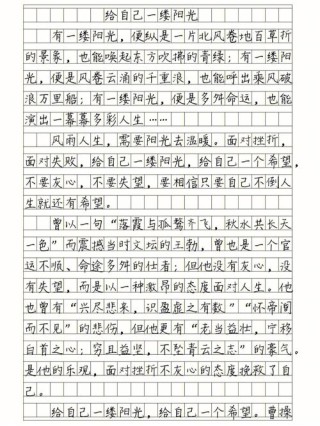 给自己一缕阳光
有一缕阳光，便纵是一片北风卷地百草折
的景象，也能唤起东方吹拂的青缕；有一缕阳
光，便是风卷云涌的千重浪，也能呼出乘风破
浪万里船；有一缕阳光，便是多舛命运，也能
演出一幕幕多彩人生……
风雨人生，需要阳光去温暖。面对挫折，
面对失败，给自己一缕阳光，给自己一个希望，
不要灰心，不要失望，要相信只要自己不倒人
生就还有希望。
曾以一句“落霞与孤鹜齐飞，秋水共长天
一色”而震撼当时文坛的王勃，曾也是一个官
运不顺、命途多舛的仕者；但他没有灰心，没
有失望，而是以一种激昂的态度面对人生。他
也曾有“兴尽悲来，识盈虚之有数”“怀帝阍
而不见”的悲伤，但他更有“老当益壮，宁移
白首之心；穷且益坚，不坠青云之志”的豪气。
是他的乐观，面对挫折不灰心的态度挽救了自
己。
给自己一缕阳光，给自己一个希望。曹操